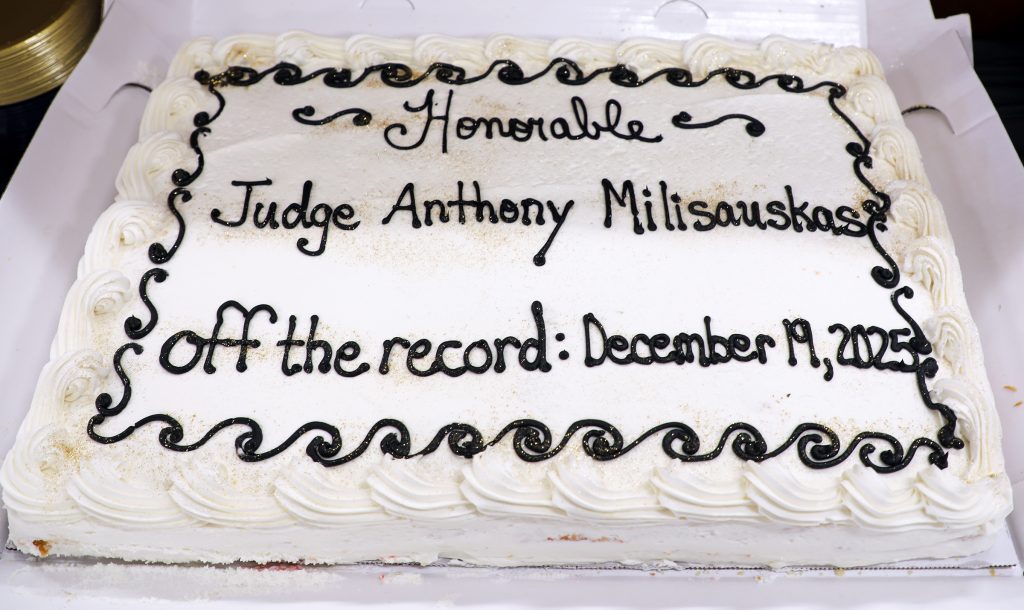 Honorable
Judge Anthony Milisauskas
off the record: December 19, 2025